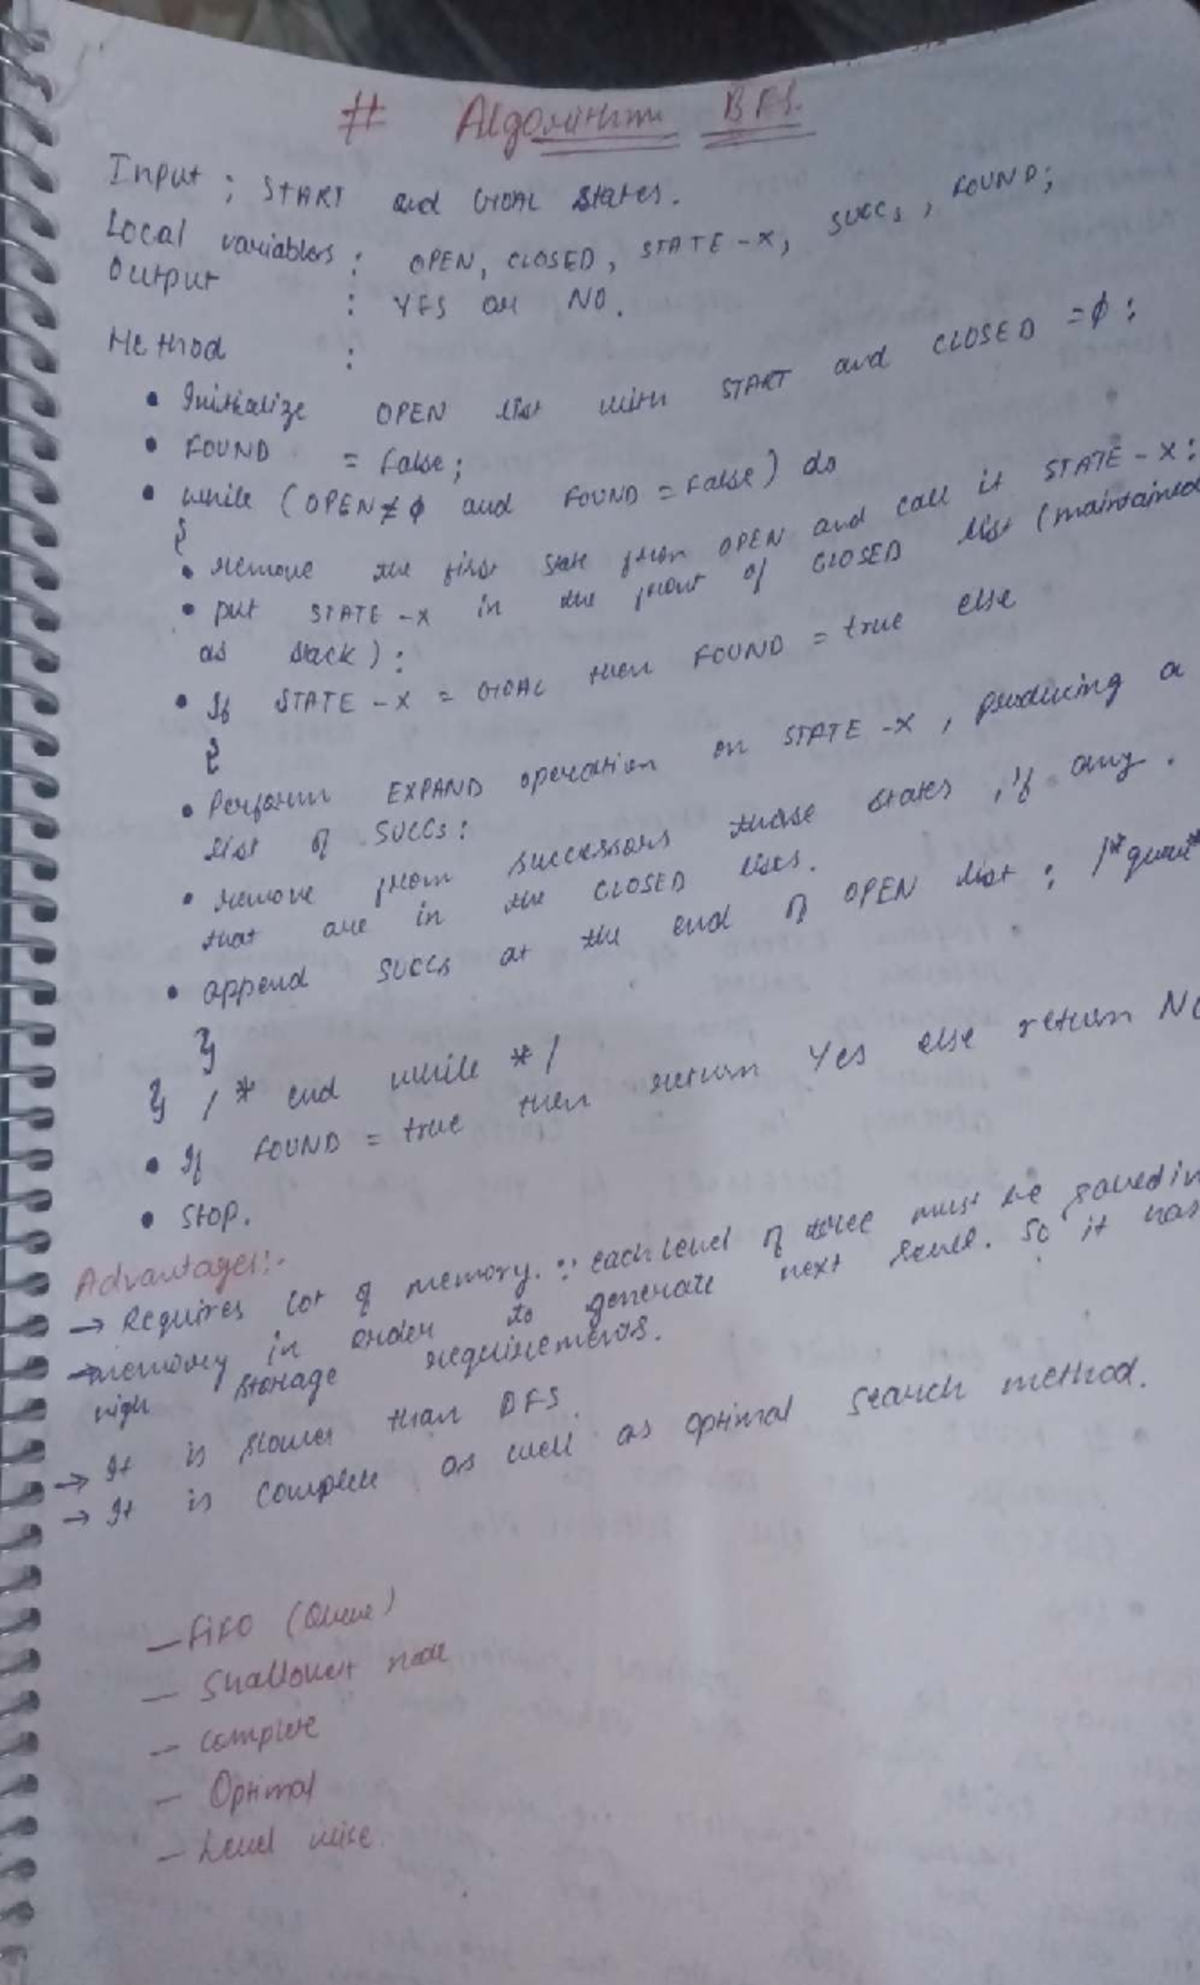 # Algorithm BFS.
Input ; START and GOAL States.
Local variables : OPEN, CLOSED, STATE-X, SUCCs, FOUND;
Output : YES or NO.
Method :
• Initialize OPEN list with START and CLOSED = ϕ :
• FOUND = false;
• while (OPEN ≠ ϕ and FOUND = false) do
{
• remove the first state from OPEN and call it STATE-X :
• put STATE-X in the front of CLOSED list (maintained
as stack) :
• If STATE-X = GOAL then FOUND = true else
{
• Perform EXPAND operation on STATE-X, producing a
list of SUCCs :
• remove from successors those states, if any.
that are in the CLOSED lists.
• append SUCCs at the end of OPEN list ; /*
}
} /* end while */
• If FOUND = true then return Yes else return No
• Stop.
Advantages:-
→ Requires lot of memory. ∵ each level of tree must be saved in
→ memory in order to generate next level. So it has
high storage requirements.
→ It is slower than DFS.
→ It is complete as well as optimal search method.
— FIFO (Queue)
— Shallowest node
— complete
— Optimal
— Level wise.